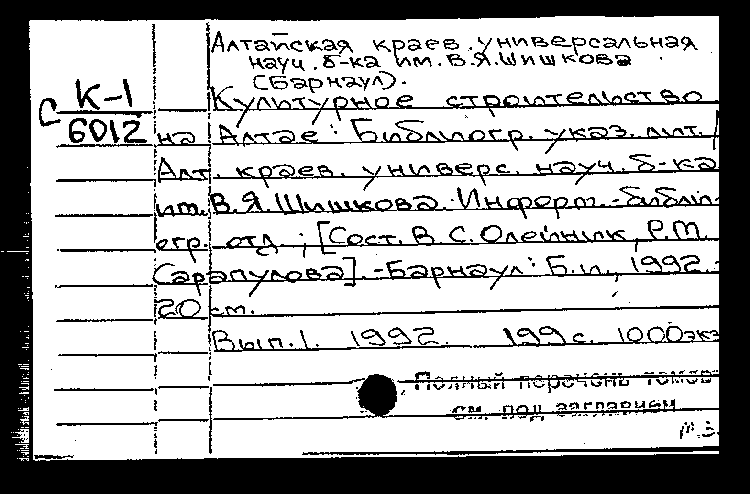 Алтайская краев. универсальная
науч. б-ка им. В.Я. Шишкова
(Барнаул).
С К-1
6012
Культурное строительство
на Алтае: Библиогр. указ. лит. /
Алт. краев. универс. науч. б-ка
им. В.Я. Шишкова. Информ.-библи-
огр. отд.; [Сост. В.С. Олейник, Р.М.
Сарапулова]. - Барнаул: Б.и., 1992. -
20 см.
Вып. 1. 1992. 199 с. 1000 экз
Полный перечень томов
см. под заглавием
м.з.